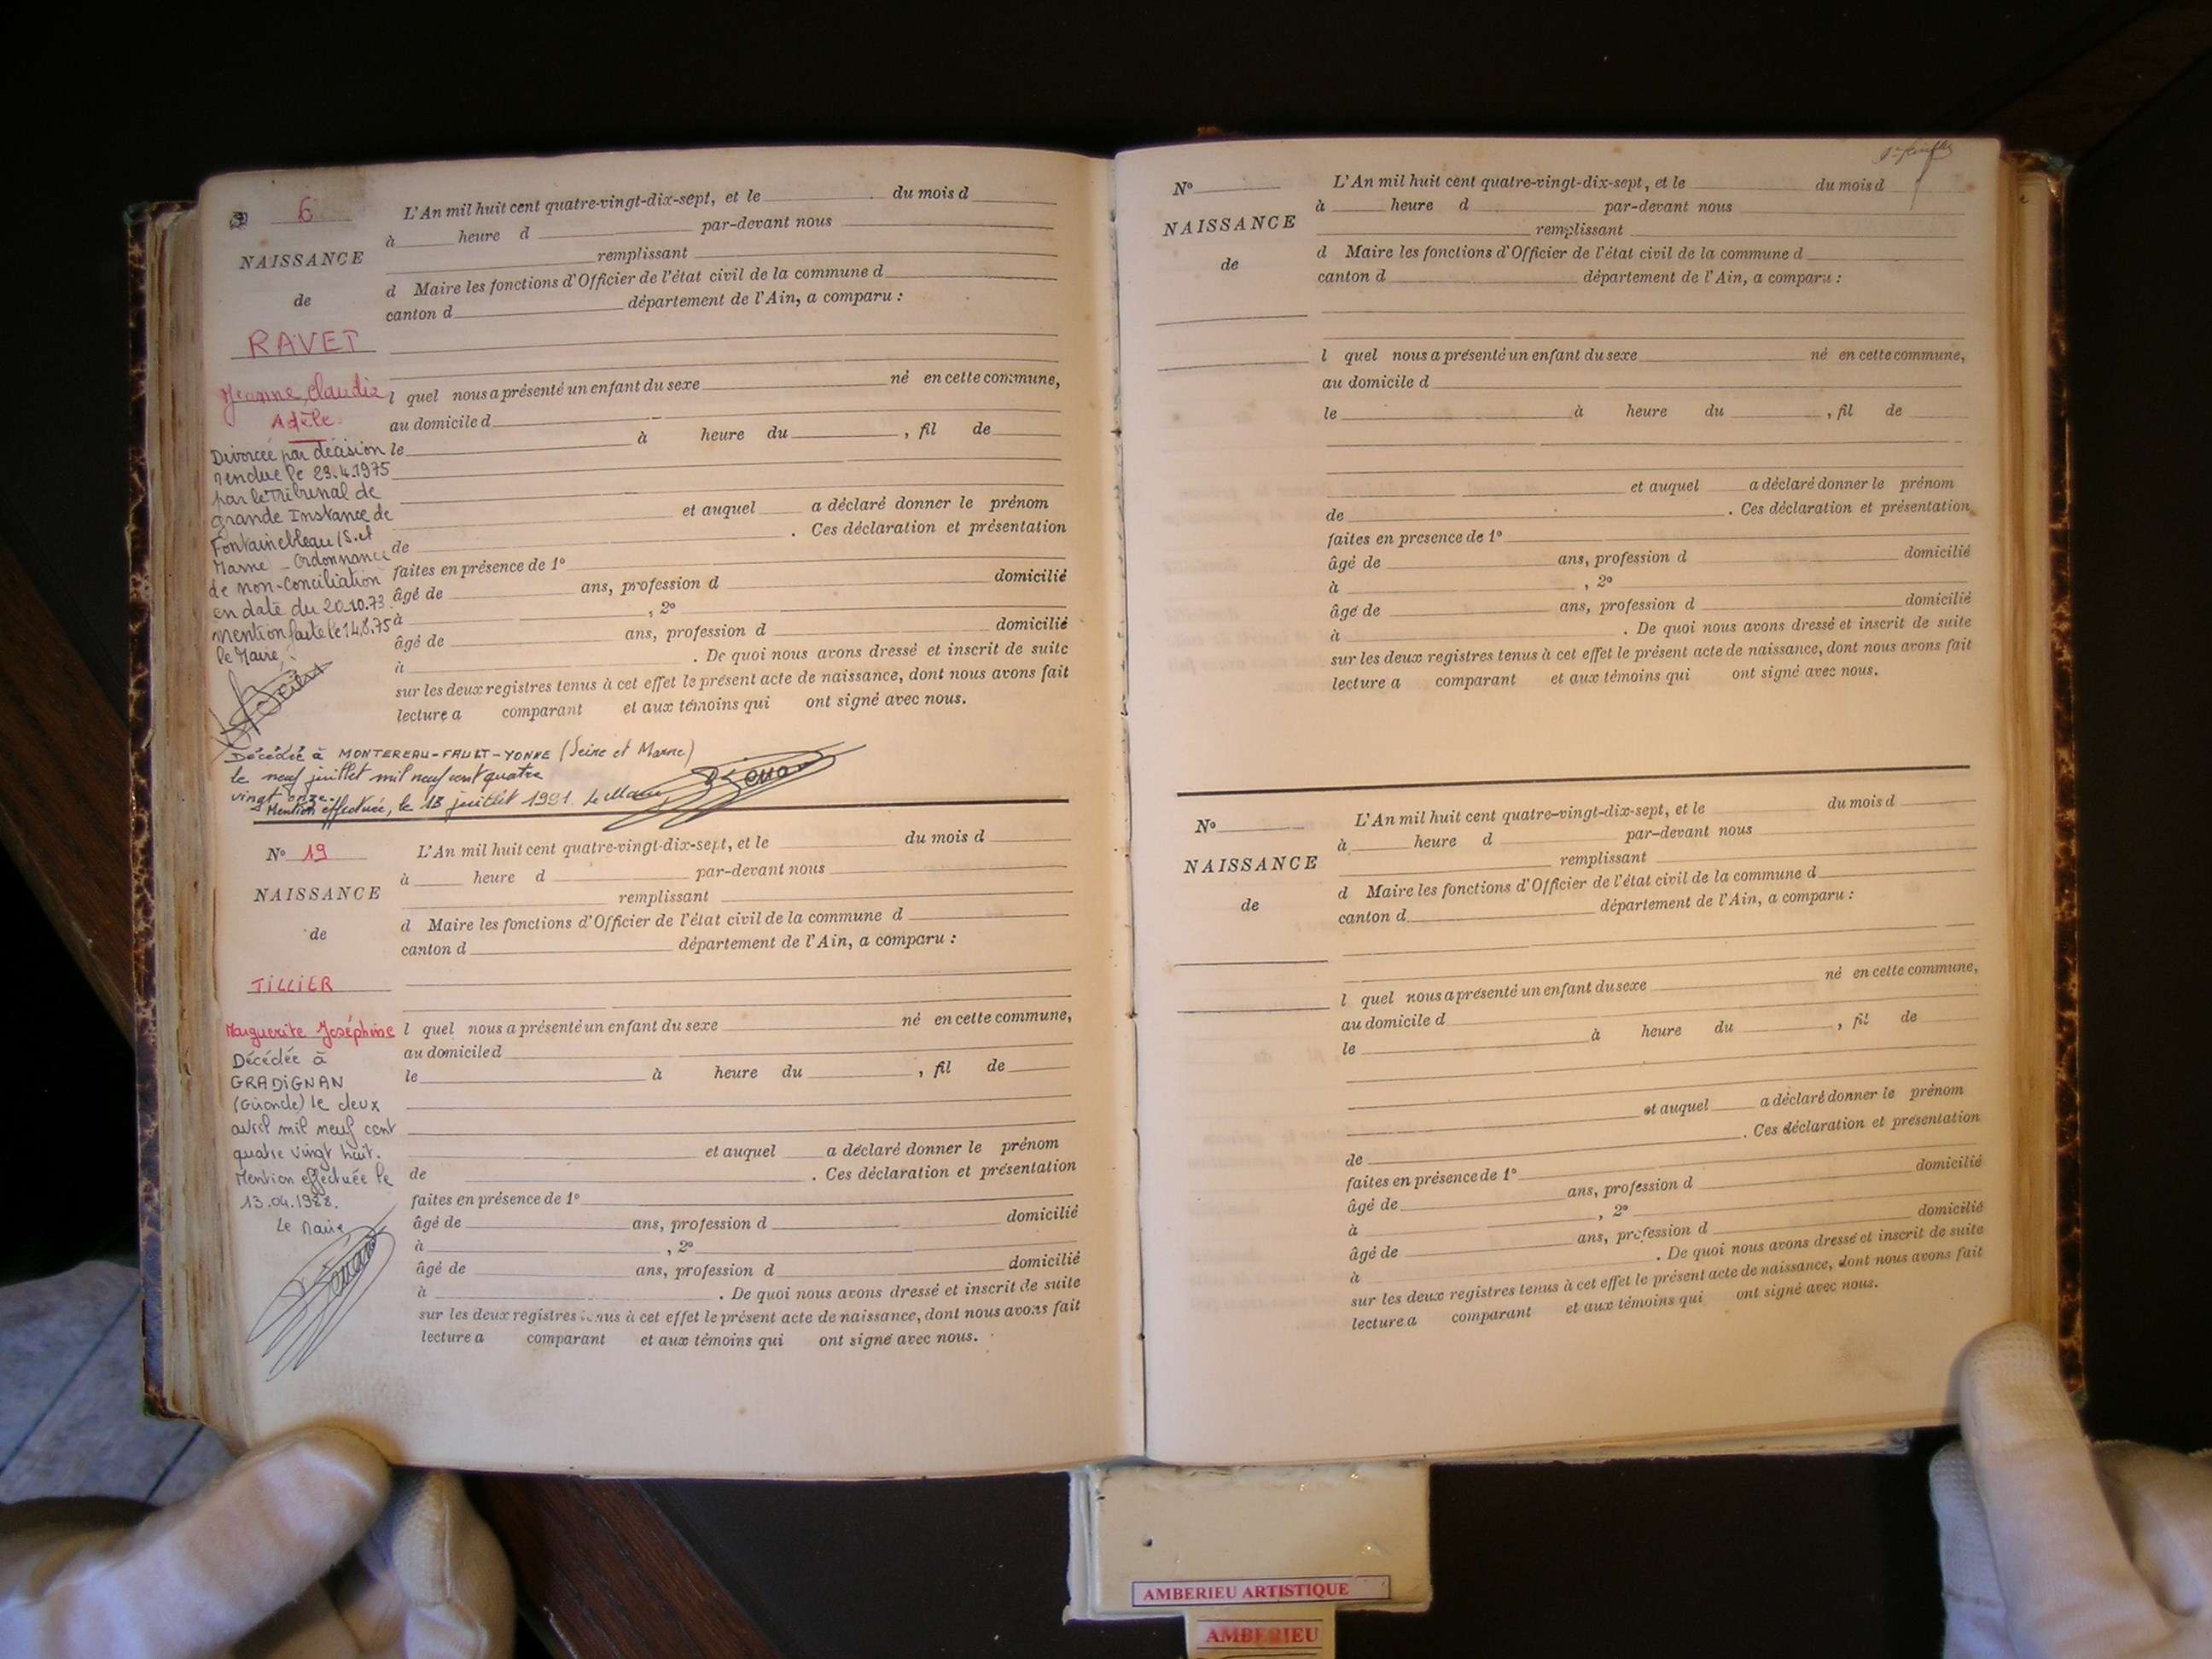 6
NAISSANCE
de
RAVET
Jeanne, Claudia
Adèle.
Divorcée par décision
rendue le 23.4.1975
par le Tribunal de
grande Instance de
Fontainebleau (S. et
Marne _ Ordonnance
de non-Conciliation
en date du 20.10.73.
Mention faite le 14.8.75
le Maire,
L'An mil huit cent quatre-vingt-dix-sept, et le du mois d
à heure d par-devant nous
remplissant
d Maire les fonctions d'Officier de l'état civil de la commune d
canton d département de l'Ain, a comparu :
l quel nous a présenté un enfant du sexe né en cette commune,
au domicile d
le à heure du , fil de
et auquel a déclaré donner le prénom
de . Ces déclaration et présentation
faites en présence de 1º
âgé de ans, profession d domicilié
à , 2º
âgé de ans, profession d domicilié
à . De quoi nous avons dressé et inscrit de suite
sur les deux registres tenus à cet effet le présent acte de naissance, dont nous avons fait
lecture a comparant et aux témoins qui ont signé avec nous.
Décédée à MONTEREAU-FAULT-YONNE (Seine et Marne)
le neuf juillet mil neuf cent quatre
vingt onze.
Mention effectuée, le 18 juillet 1991. Le Maire
Nº 19
NAISSANCE
de
TILLIER
Marguerite Joséphine
Décédée à
GRADIGNAN
(Gironde) le deux
avril mil neuf cent
quatre vingt huit.
Mention effectuée le
13.04.1988.
Le Maire,
L'An mil huit cent quatre-vingt-dix-sept, et le du mois d
à heure d par-devant nous
remplissant
d Maire les fonctions d'Officier de l'état civil de la commune d
canton d département de l'Ain, a comparu :
l quel nous a présenté un enfant du sexe né en cette commune,
au domicile d
le à heure du , fil de
et auquel a déclaré donner le prénom
de . Ces déclaration et présentation
faites en présence de 1º
âgé de ans, profession d domicilié
à , 2º
âgé de ans, profession d domicilié
à . De quoi nous avons dressé et inscrit de suite
sur les deux registres tenus à cet effet le présent acte de naissance, dont nous avons fait
lecture a comparant et aux témoins qui ont signé avec nous.
Nº
NAISSANCE
de
L'An mil huit cent quatre-vingt-dix-sept, et le du mois d
à heure d par-devant nous
remplissant
d Maire les fonctions d'Officier de l'état civil de la commune d
canton d département de l'Ain, a comparu :
l quel nous a présenté un enfant du sexe né en cette commune,
au domicile d
le à heure du , fil de
et auquel a déclaré donner le prénom
de . Ces déclaration et présentation
faites en presence de 1º
âgé de ans, profession d domicilié
à , 2º
âgé de ans, profession d domicilié
à . De quoi nous avons dressé et inscrit de suite
sur les deux registres tenus à cet effet le présent acte de naissance, dont nous avons fait
lecture a comparant et aux témoins qui ont signé avec nous.
Nº
NAISSANCE
de
L'An mil huit cent quatre-vingt-dix-sept, et le du mois d
à heure d par-devant nous
remplissant
d Maire les fonctions d'Officier de l'état civil de la commune d
canton d département de l'Ain, a comparu :
l quel nous a présenté un enfant du sexe né en cette commune,
au domicile d
le à heure du , fil de
et auquel a déclaré donner le prénom
. Ces déclaration et présentation
de
faites en présence de 1º
âgé de ans, profession d domicilié
à , 2º
âgé de ans, profession d domicilié
à . De quoi nous avons dressé et inscrit de suite
sur les deux registres tenus à cet effet le présent acte de naissance, dont nous avons fait
lecture a comparant et aux témoins qui ont signé avec nous.
AMBERIEU ARTISTIQUE
AMBERIEU